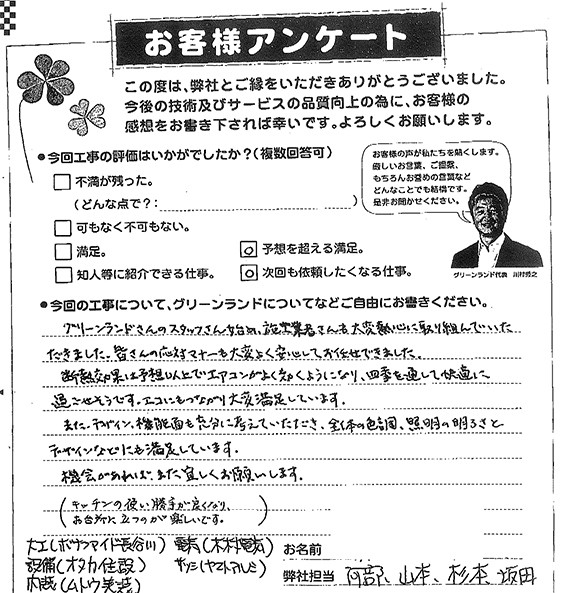 お客様アンケート
この度は、弊社とご縁をいただきありがとうございました。
今後の技術及びサービスの品質向上の為に、お客様の
感想をお書き下されば幸いです。よろしくお願いします。
●今回工事の評価はいかがでしたか?(複数回答可)
不満が残った。
(どんな点で?: )
可もなく不可もない。
満足。
予想を超える満足。
知人等に紹介できる仕事。
次回も依頼したくなる仕事。
お客様の声が私たちを動くします。
厳しいお言葉、ご提案、
もちろんお褒めの言葉など
どんなことでも結構です。
是非お聞かせください。
グリーンランド代表
●今回の工事について、グリーンランドについてなどご自由にお書きください。
グリーンランドさんのスタッフさん始め、施工業者さんも大変熱心に取り組んでいた
だきました。皆さんの応対マナーも大変よく安心してお任せできました。
断熱効果は予想以上でエアコンがよく効くようになり、四季を通して快適に
過ごせそうです。エコにもつながり大変満足しています。
また、デザイン、機能面も充分に考えていただき、全体の色調、照明の明るさと
デザインなどにも満足しています。
機会があれば、また宜しくお願いします。
(キッチンの使い勝手が良くなり、
お台所に立つのが楽しいです。)
大工(ボナファイド長谷川) 電気(木村電気)
設備(オタカ住設) サッシ(ヤマトアルミ)
内装(ムトウ美装)
お名前
弊社担当 阿部、山本、杉本、坂田